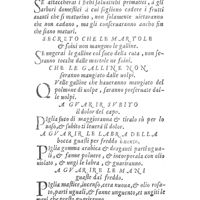 Se attaccherai i Pefsi salvatichi prematici, à gli
arbori domestici i cui sogliono cadere i frutti
auanti che si maturino, non solamente riteranno
che non cadano, ma gli conseruaranno anchi sin
che siano maturi.
SECRETO CHE LE MARTOLE
e foini non mangino le galline.
Se ungerai le galline col suco della ruta, non se-
ranno tocche dalle martole ne foini.
CHE LE GALLINE NON
seranno mangiate dalle uolpi.
Quelle galline che haueranno mangiato del
polmone di uolpe, seranno preseruate dal-
le uolpi.
A GVARIR SVBITO
il dolor del capo.
Piglia suco di maggiorana & tiralo sù per lo
naso, & subito ti leuerà il dolor.
A GVARIR LE LABRA DELLA
bocca guaste per freddo
Piglia gomma arabica & draganti parti ugua-
li, & fanne poluere, & incorporala con olio
uiolato, & ungi le labra, & guariranno.
A GVARIRE LE MANI
guaste dal freddo.
Piglia mastice, incenso, cera nuoua, & olio rosa-
to, parti uguali, & fanne unguento, & ungiti